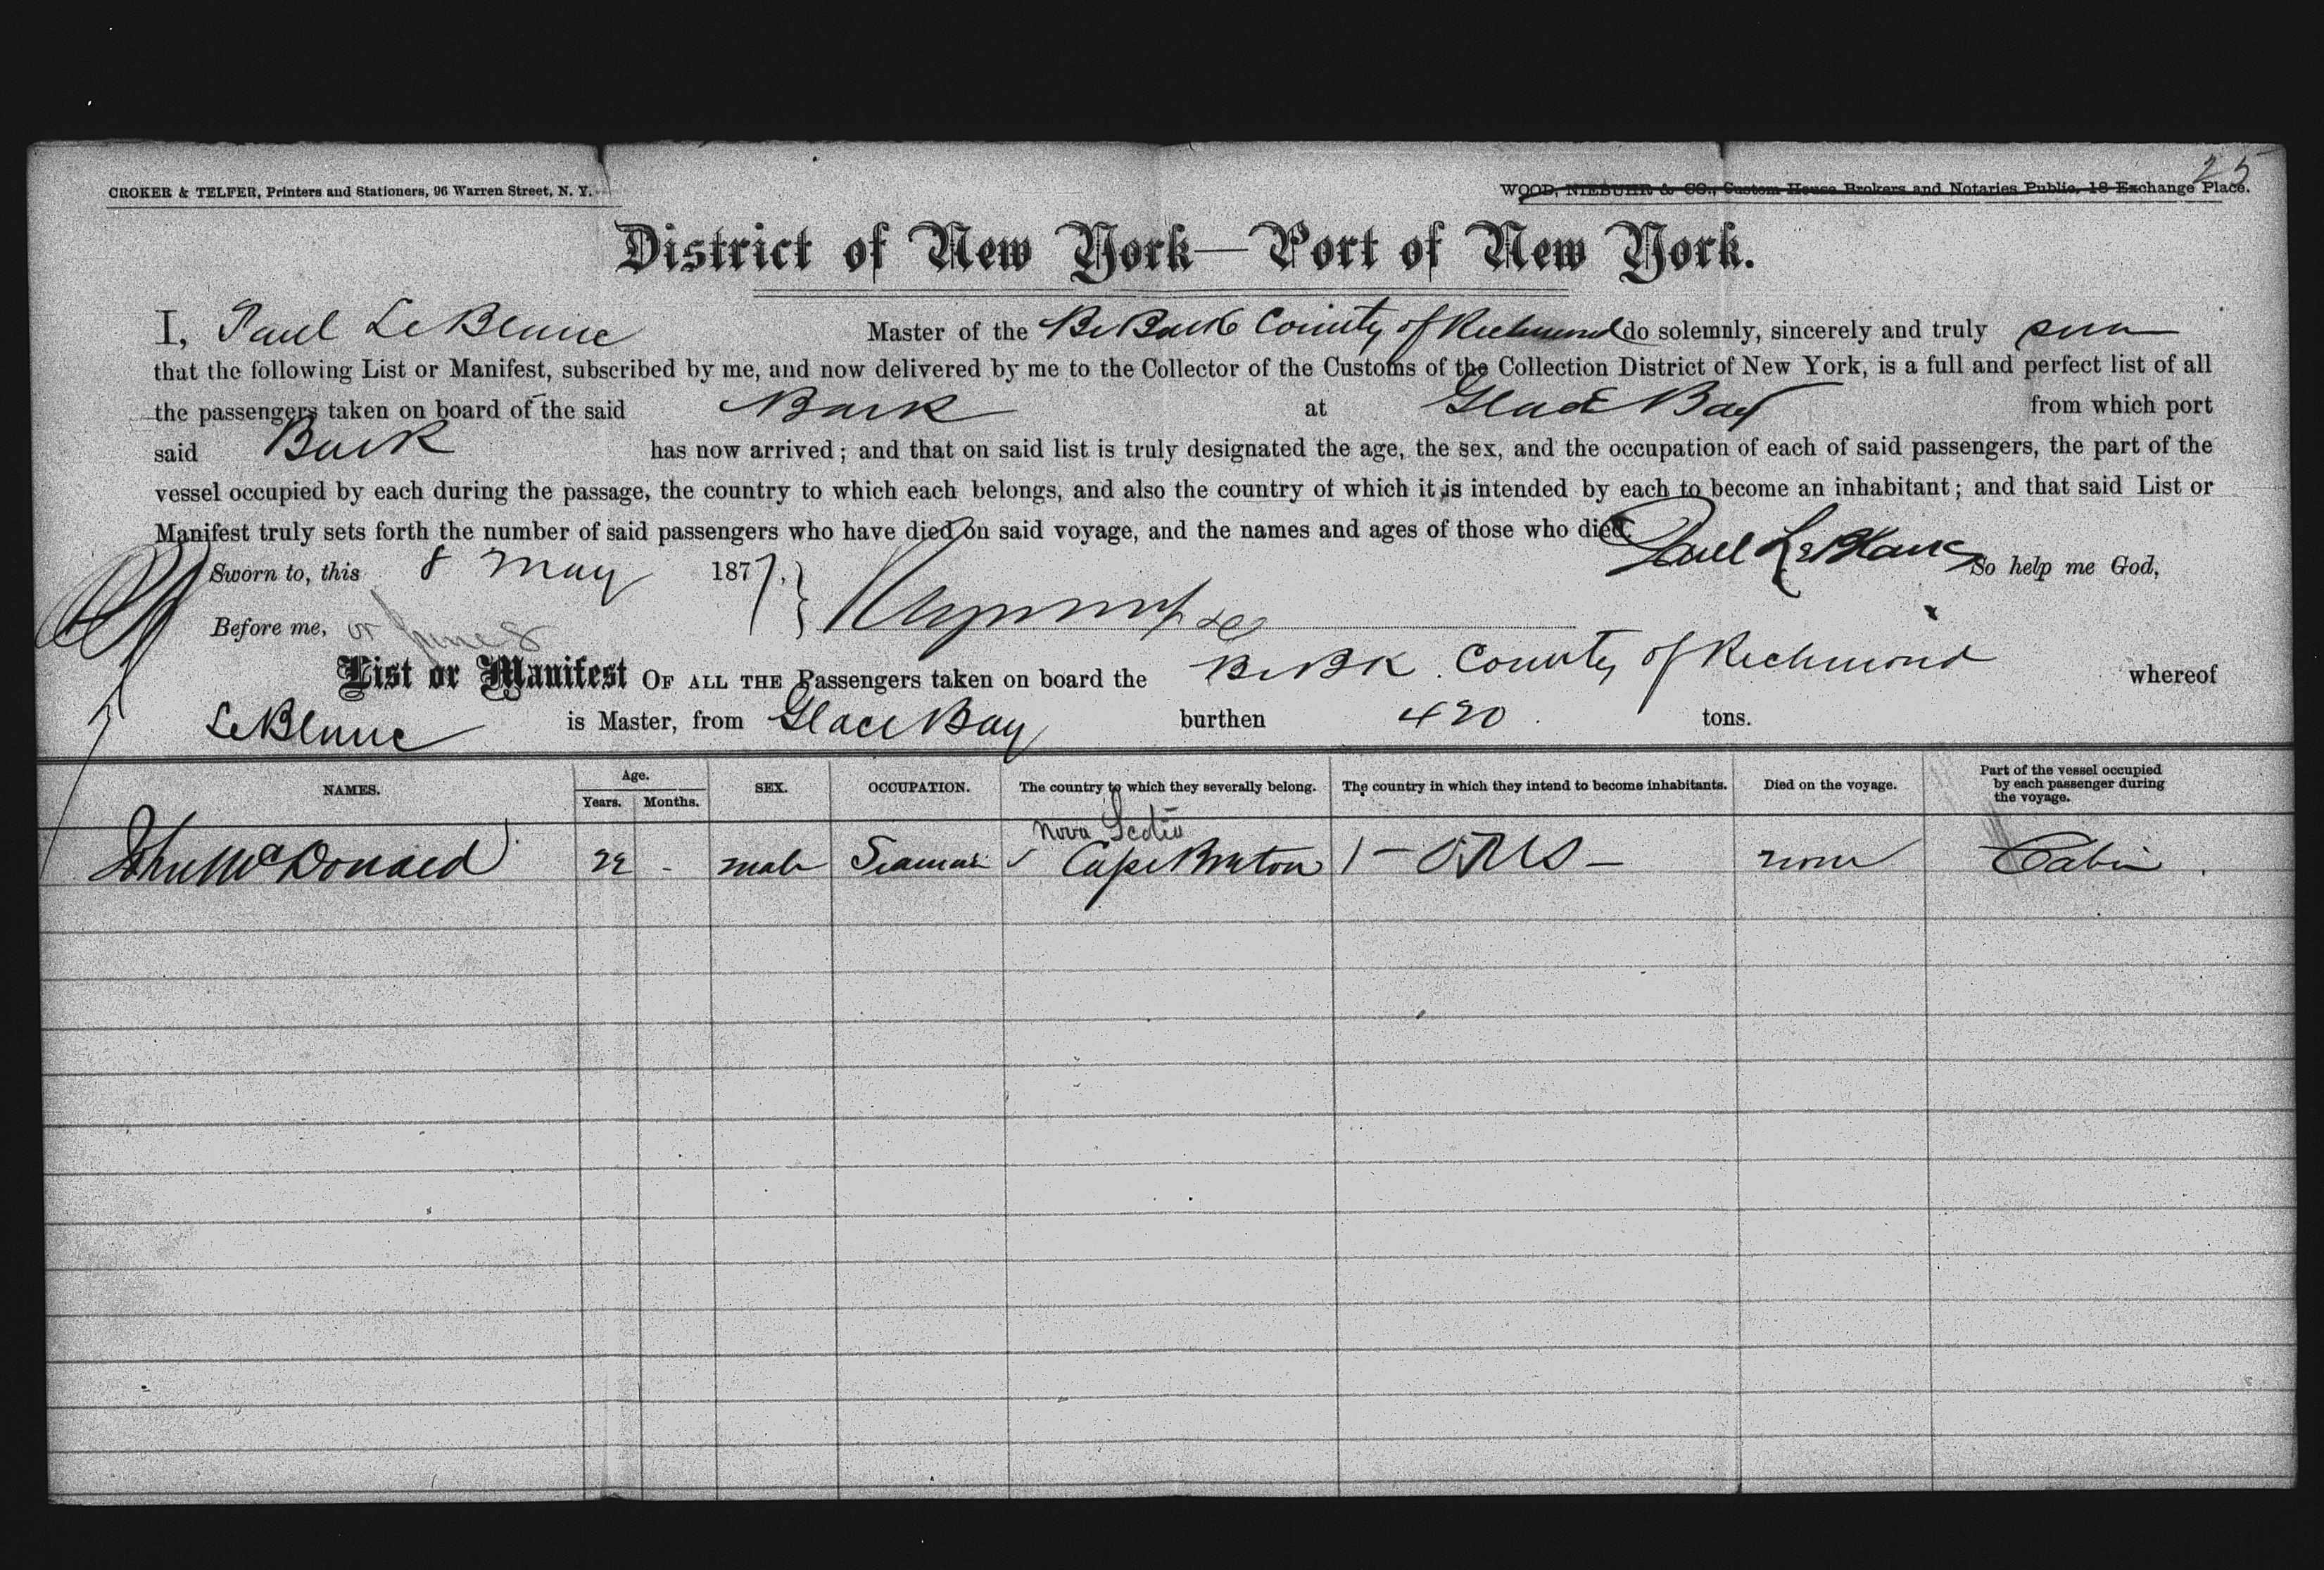 25
CROKER & TELFER, Printers and Stationers, 96 Warren Street, N. Y.
WOOD, NIEBUHR & CO., Custom House Brokers and Notaries Public, 18 Exchange Place.
District of New York—Port of New York.
I, Paul LeBlanc Master of the Br Bark County of Richmond do solemnly, sincerely and truly
that the following List or Manifest, subscribed by me, and now delivered by me to the Collector of the Customs of the Collection District of New York, is a full and perfect list of all
the passengers taken on board of the said Bark at Glace Bay from which port
said Bark has now arrived; and that on said list is truly designated the age, the sex, and the occupation of each of said passengers, the part of the
vessel occupied by each during the passage, the country to which each belongs, and also the country of which it is intended by each to become an inhabitant; and that said List or
Manifest truly sets forth the number of said passengers who have died on said voyage, and the names and ages of those who died.
Sworn to, this 8 May 1877, } Paul LeBlanc So help me God,
Before me, or June 8
List or Manifest OF ALL THE Passengers taken on board the Br BK. County of Richmond whereof
LeBlanc is Master, from Glace Bay burthen 420 tons.
NAMES. Age. Years. Months. SEX. OCCUPATION. The country to which they severally belong. The country in which they intend to become inhabitants. Died on the voyage. Part of the vessel occupied by each passenger during the voyage.
Nova Scotia
John McDonald 22 - male Seaman Cape Breton none Cabin